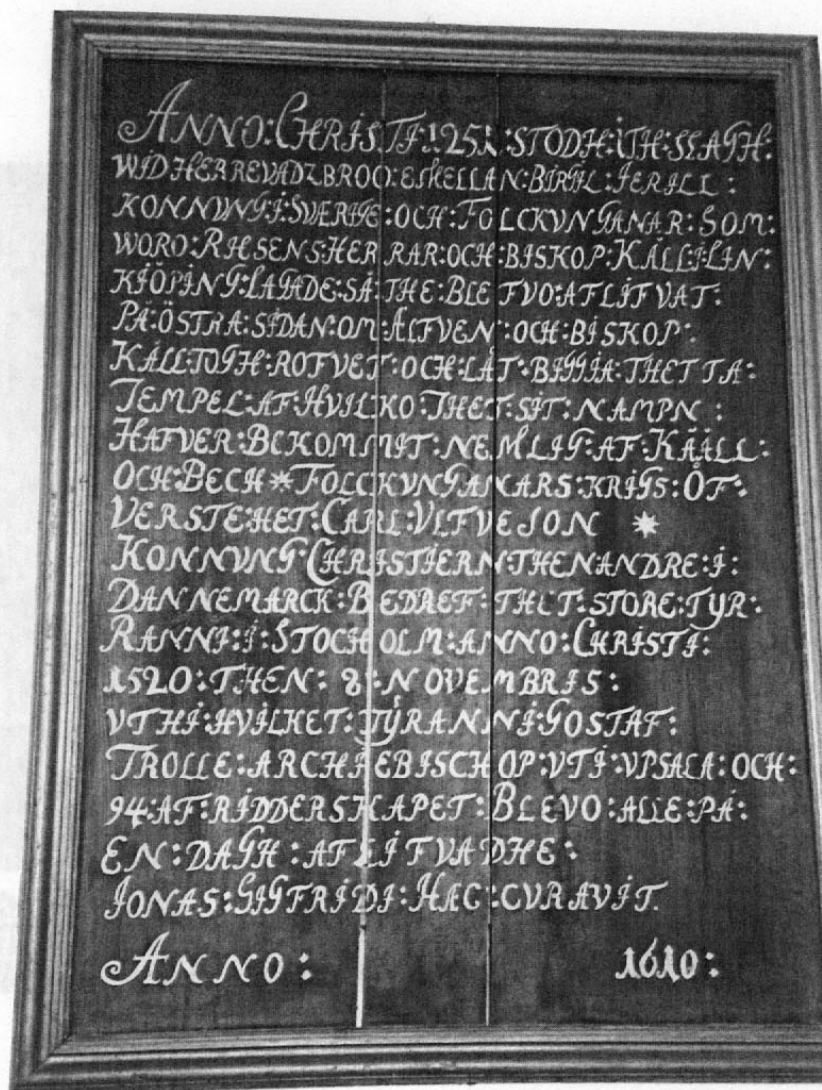 ANNO:CHRISTI:1251:STODH:ITH:SLAGH:
WIDHERREVADZBROO:EMELLAN:BIRGIL:IERILL:
KONNVNG:I:SVERIGE:OCH:FOLCKVNGANAR:SOM:
WORO:RIISENS:HERRAR:OCH:BISKOP:KÄLL:I:LIN:
KIÖPING:LAGADE:SÅ:THE:BLEFVO:AFLIFVAT:
PÅ:ÖSTRA:SIDAN:OM:ÄLFVEN:OCH:BISKOP:
KÄLL:TOGH:ROFVET:OCH:LÄT:BIGGIA:THETTA:
TEMPEL:AF:HVILKO:THET:SIT:NAMPN:
HAFVER:BEKOMMIT:NEMLIG:AF:KÄÄLL:
OCH:BECH*FOLCKVNGANARS:KRIGS:ÖF:
VERSTE:HET:CARL:VLFVESON *
KONNVNG:CHRISTIERN:THENANDRE:I:
DANNEMARCK:BEDREF:THET:STORE:TYR:
RANNI:I:STOCHOLM:ANNO:CHRISTI:
1520:THEN:8:NOVEMBRIS:
VTHI:HVILKET:TYRANNI:GOSTAF:
TROLLE:ARCHIEBISCHOP:VTI:VPSALA:OCH:
94:AF:RIDDERSKAPET:BLEVO:ALLE:PÅ:
EN:DAGH:AFLIFVADHE:
IONAS:SIGFRIDI:HAC:CVRAVIT.
ANNO: 1610: